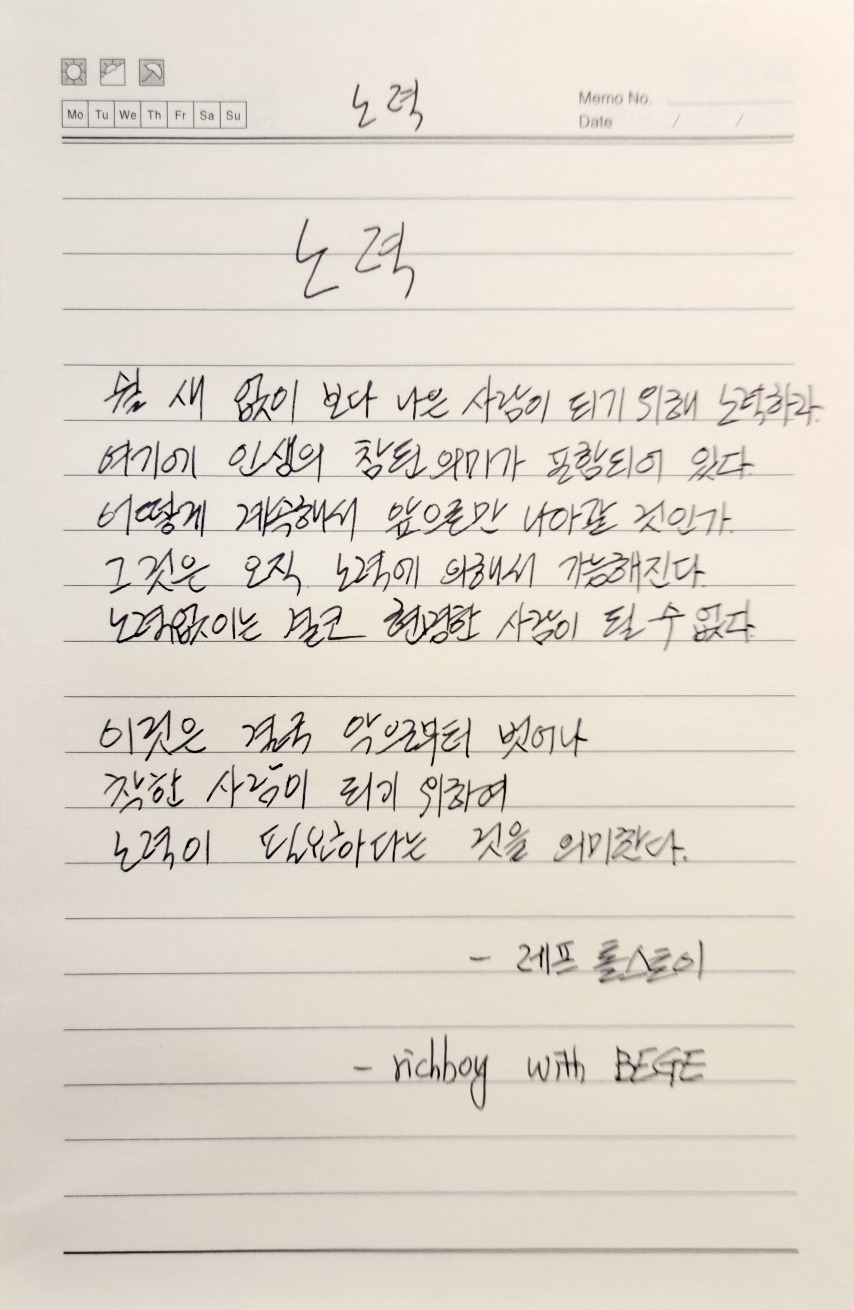 노력
Memo No.
Mo Tu We Th Fr Sa Su
Date / /
노력
쉴 새 없이 보다 나은 사람이 되기 위해 노력하라.
여기에 인생의 참된 의미가 포함되어 있다.
어떻게 계속해서 앞으로만 나아갈 것인가.
그것은 오직 노력에 의해서 가능해진다.
노력없이는 결코 현명한 사람이 될 수 없다.
이것은 결국 악으로부터 벗어나
착한 사람이 되기 위하여
노력이 필요하다는 것을 의미한다.
- 레프 톨스토이
- richboy with BEGE